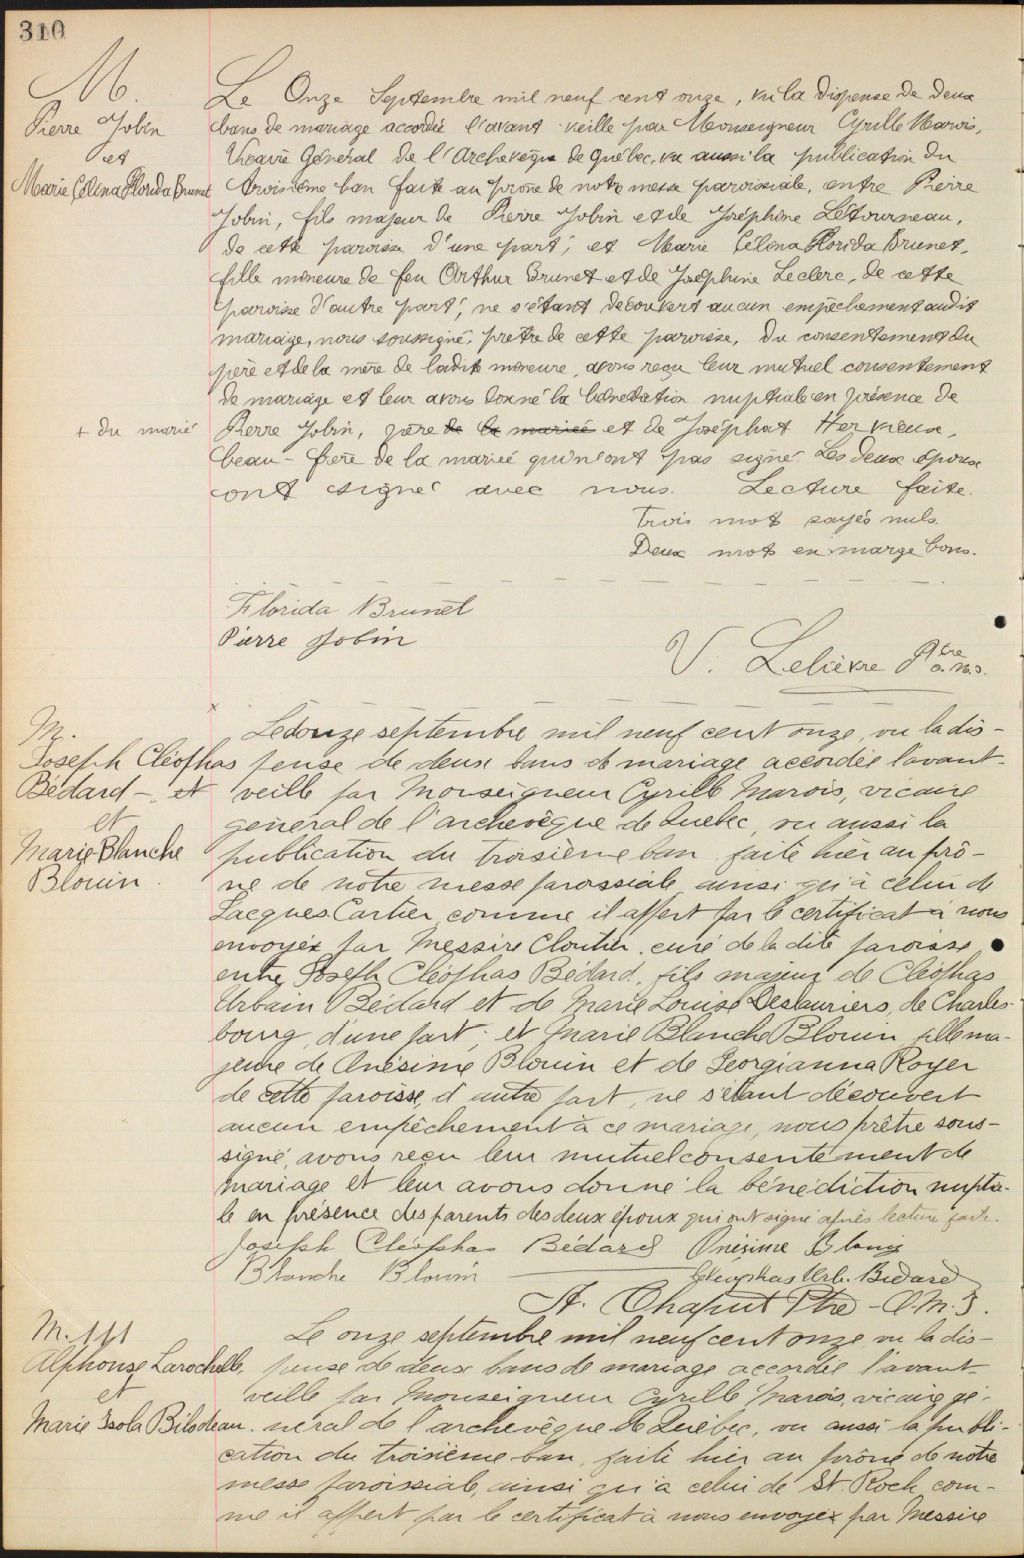 310
M.
Pierre Jobin
et
Marie Célena Florida Brunet
Le Onze Septembre mil neuf cent onze, vu la dispense de deux
bans de mariage accordée l'avant veille par Monseigneur Cyrille Marois,
Vicaire Général de l'Archevêque de Québec, vu aussi la publication du
troisième ban faite au prône de notre messe paroissiale, entre Pierre
Jobin, fils majeur de Pierre Jobin et de Joséphine Létourneau,
de cette paroisse d'une part; et Marie Célena Florida Brunet,
fille mineure de feu Arthur Brunet et de Joséphine Leclerc, de cette
paroisse d'autre part; ne s'étant découvert aucun empêchement audit
mariage, nous soussigné, prêtre de cette paroisse, du consentement du
père et de la mère de ladite mineure, avons reçu leur mutuel consentement
de mariage et leur avons donné la bénédiction nuptiale en présence de
+ du marié
Pierre Jobin, père de la mariée et de Joséphat Hervieux,
beau-frère de la mariée qui n'ont pas signé. Les deux époux
ont signé avec nous. Lecture faite.
Trois mot rayés nuls.
Deux mots en marge bons.
Florida Brunet
Pierre Jobin
V. Lelièvre Ptre o.m.i.
M.
Joseph Cléophas
Bédard - et
et
Marie Blanche
Blouin.
Le douze septembre mil neuf cent onze, vu la dis-
pense de deux bans de mariage accordée l'avant-
veille par Monseigneur Cyrille Marois, vicaire
général de l'archevêque de Québec, vu aussi la
publication du troisième ban faite hier au prô-
ne de notre messe paroissiale ainsi qu'à celui de
Jacques Cartier, comme il appert par le certificat à nous
envoyé par Messire Cloutier, curé de la dite paroisse,
entre Joseph Cléophas Bédard, fils majeur de Cléophas
Urbain Bédard et de Marie Louise Deslauriers, de Charles-
bourg, d'une part; et Marie Blanche Blouin fille ma-
jeure de Onésime Blouin et de Georgianna Royer
de cette paroisse, d'autre part, ne s'étant découvert
aucun empêchement à ce mariage, nous prêtre sous-
signé, avons reçu leur mutuel consentement de
mariage et leur avons donné la bénédiction nuptia-
le en présence des parents des deux époux qui ont signé après lecture faite.
Joseph Cléophas Bédard Onésime Blouin
Blanche Blouin Cléophas Urb. Bédard
A. Chaput Ptre - O.M.I.
M.
Alphonse Larochelle,
et
Marie Isola Bilodeau.
Le onze septembre mil neuf cent onze, vu la dis-
pense de deux bans de mariage accordée l'avant-
veille par Monseigneur Cyrille Marois, vicaire gé-
néral de l'archevêque de Québec, vu aussi la publi-
cation du troisième ban, faite hier au prône de notre
messe paroissiale, ainsi qu'à celui de St. Roch, com-
me il appert par le certificat à nous envoyé par Messire